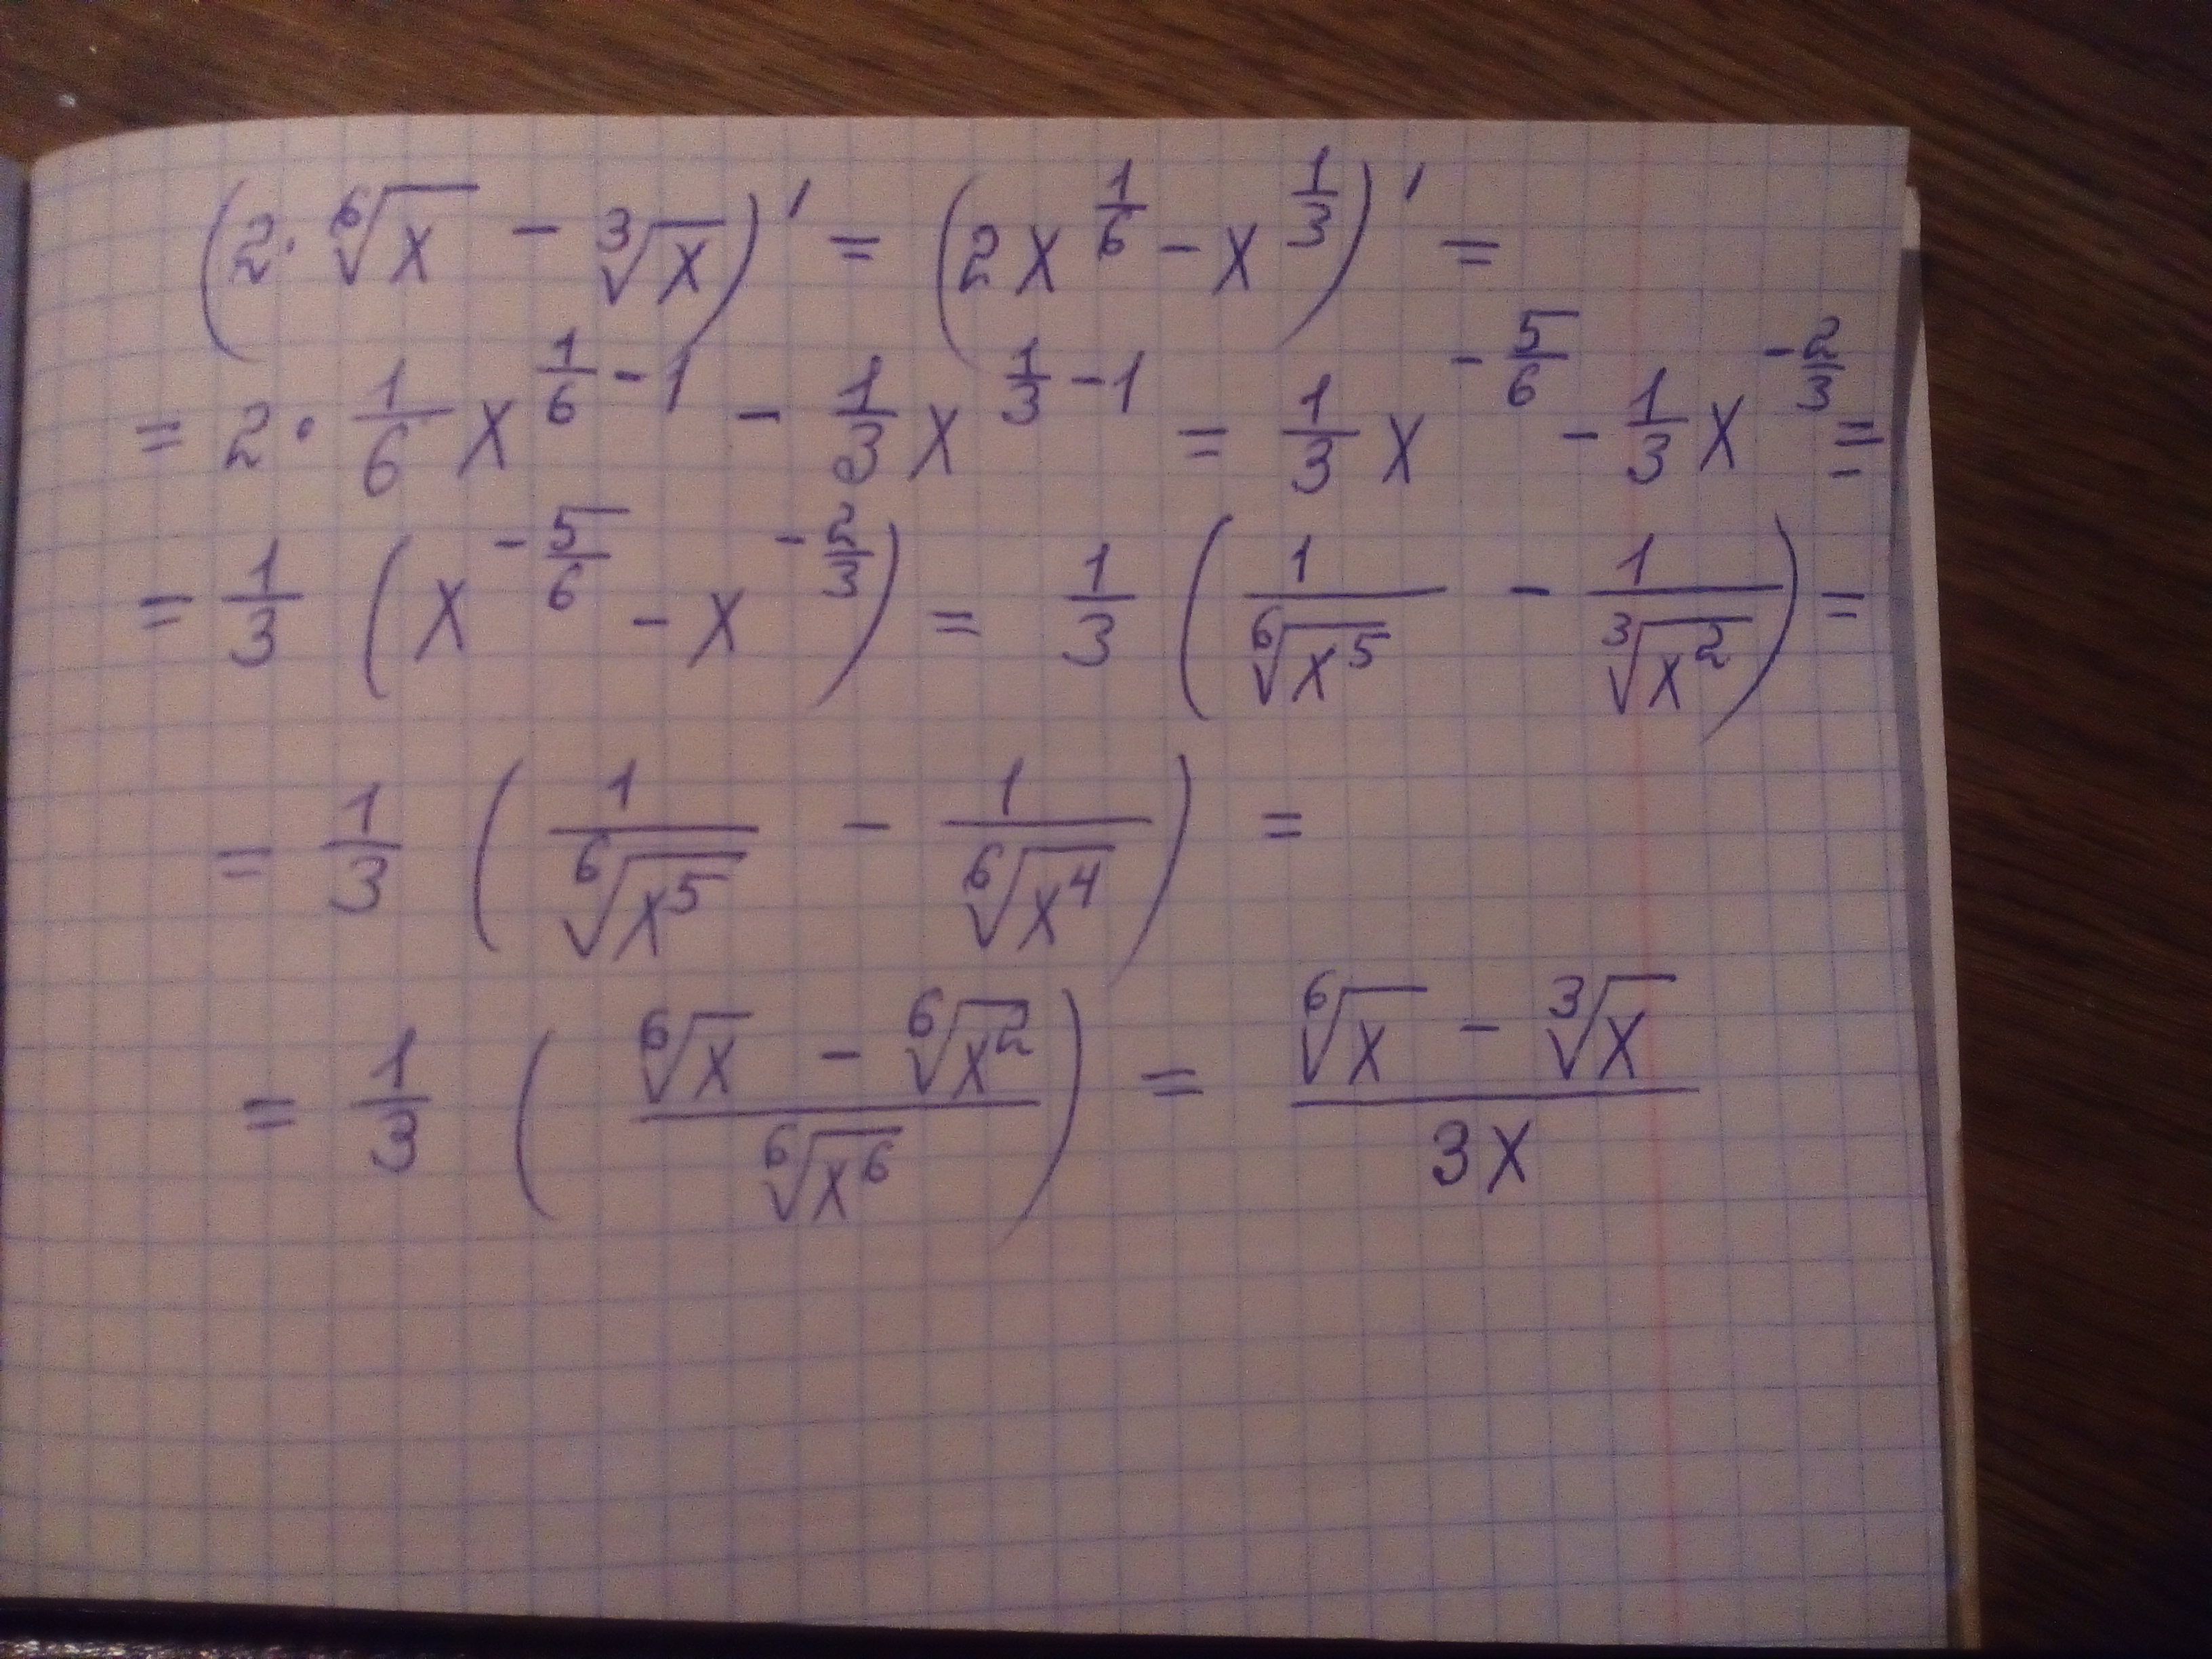 (2·⁶√x − ³√x)′ = (2x^(1/6) − x^(1/3))′ =
= 2·1/6 x^(1/6 − 1) − 1/3 x^(1/3 − 1) = 1/3 x^(−5/6) − 1/3 x^(−2/3) =
= 1/3 (x^(−5/6) − x^(−2/3)) = 1/3 (1/⁶√x⁵ − 1/³√x²) =
= 1/3 (1/⁶√x⁵ − 1/⁶√x⁴) =
= 1/3 ((⁶√x − ⁶√x²)/⁶√x⁶) = (⁶√x − ³√x)/3x